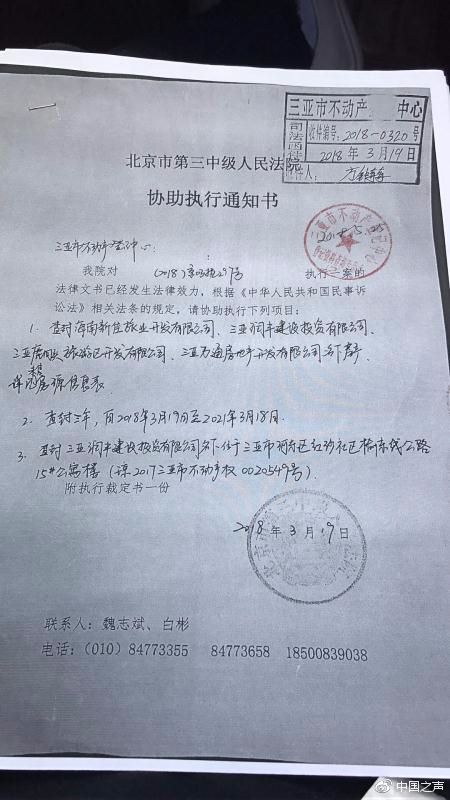 三亚市不动产 中心
司法函件
收件编号: 2018-0320号
2018年3月19日
收件人:
北京市第三中级人民法院
协助执行通知书
三亚市不动产登记中心:
我院对 (2018)京03执29号 执行一案的
法律文书已经发生法律效力,根据《中华人民共和国民事诉
讼法》相关法条的规定,请协助执行下列项目:
1. 查封海南新佳旅业开发有限公司、三亚润丰建设投资有限公司、
三亚 旅游区开发有限公司、三亚万通房地产开发有限公司名下房产
详见房源信息表
2. 查封三年,自2018年3月19日至2021年3月18日.
3. 查封三亚润丰建设投资有限公司名下位于三亚市河东区红沙社区榆东线公路
15#公寓楼(琼2017三亚市不动产权0020549号).
附执行裁定书一份
2018年3月19日
联系人:魏志斌、白彬
电话:(010)84773355 84773658 18500839038
中国之声